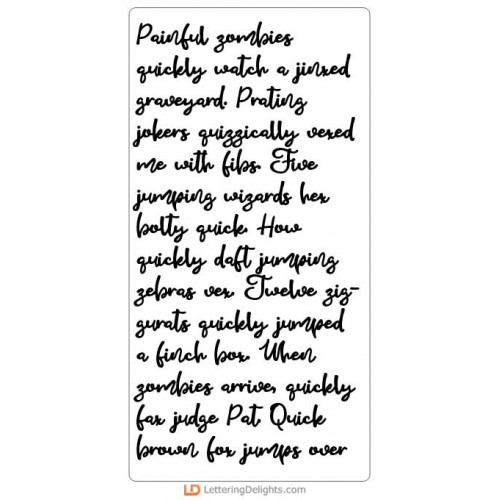 Painful zombies
quickly watch a jinxed
graveyard. Prating
jokers quizzically vexed
me with fibs. Five
jumping wizards hex
bolty quick. How
quickly daft jumping
zebras vex. Twelve zig-
gurats quickly jumped
a finch box. When
zombies arrive, quickly
fax judge Pat. Quick
brown fox jumps over
LD LetteringDelights.com